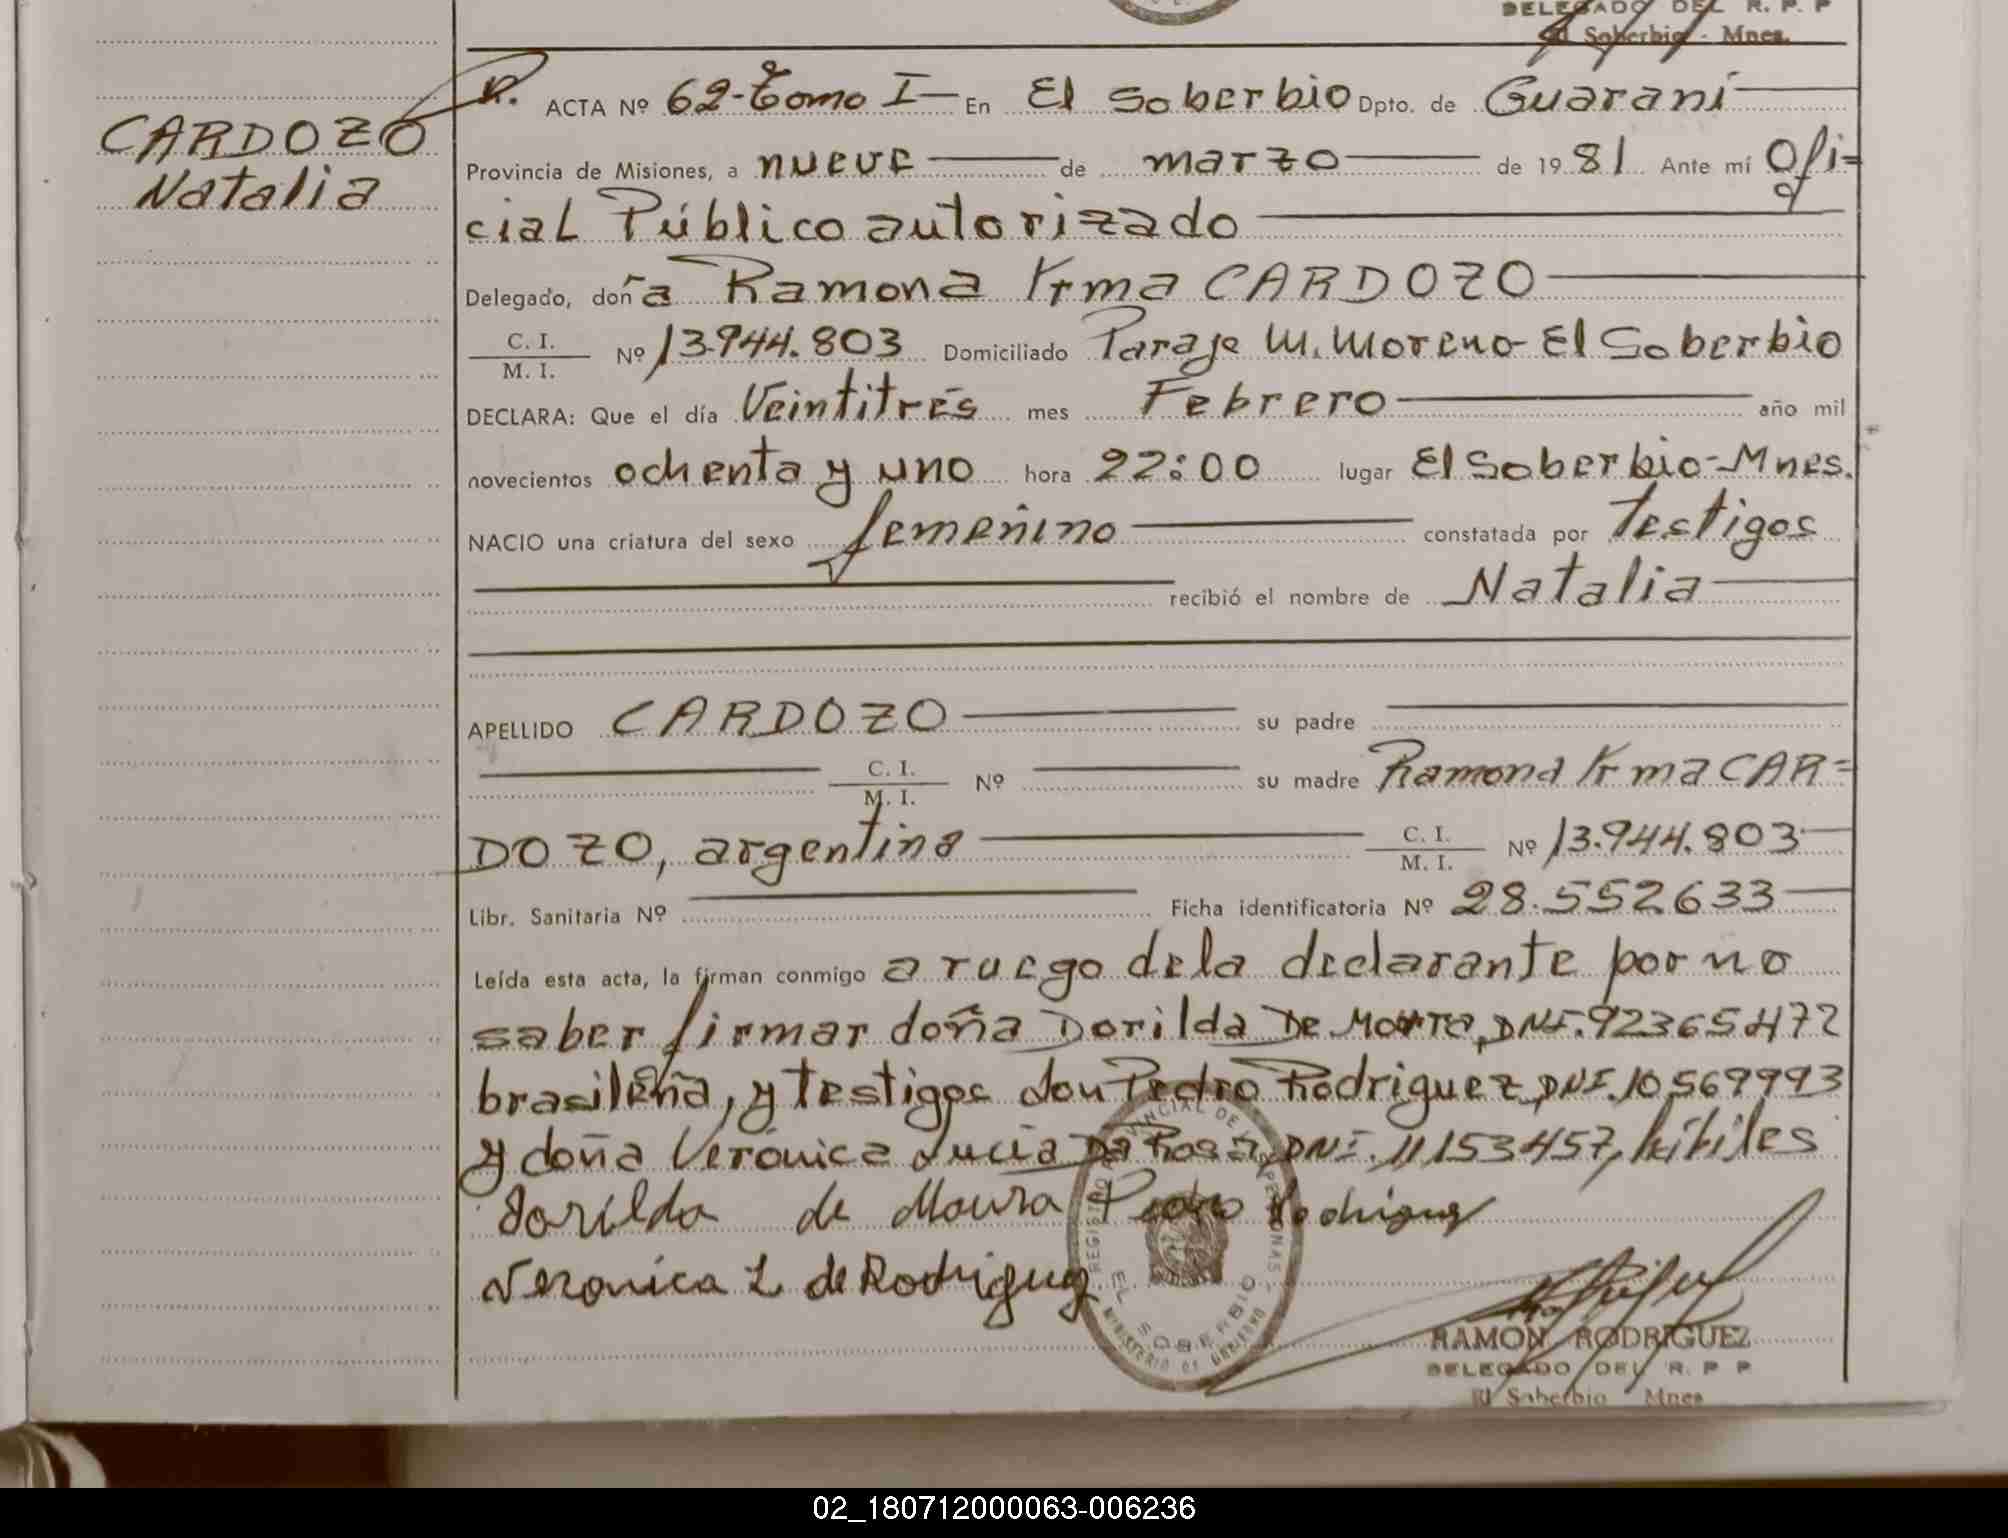 DELEGADO DEL R. P. P
El Soberbio - Mnes.
N. ACTA Nº 62-Tomo I En El Soberbio Dpto. de Guaraní
CARDOZO
Natalia
Provincia de Misiones, a nueve de marzo de 1981 Ante mí Ofi=
cial Público autorizado
Delegado, doña Ramona Yrma CARDOZO
C. I.
M. I. Nº 13.944.803 Domiciliado Paraje M. Moreno - El Soberbio
DECLARA: Que el día Veintitrés mes Febrero año mil
novecientos ochenta y uno hora 22:00 lugar El Soberbio-Mnes.
NACIO una criatura del sexo femenino constatada por Testigos
recibió el nombre de Natalia
APELLIDO CARDOZO su padre
C. I.
M. I. Nº su madre Ramona Yrma CAR=
DOZO, argentina C. I.
M. I. Nº 13.944.803
Libr. Sanitaria Nº Ficha identificatoria Nº 28.552.633
Leída esta acta, la firman conmigo a ruego de la declarante por no
saber firmar doña Dorilda De Moura, DNI. 92365472
brasileña, y testigos don Pedro Rodriguez, DNI. 10.569993
y doña Verónica Lucia Da Rosa, DNI. 11153457, hábiles
Dorilda de Moura Pedro Rodriguez
Veronica L de Rodriguez
REGISTRO PROVINCIAL DE LAS PERSONAS
EL SOBERBIO
MINISTERIO DE GOBIERNO
RAMON RODRIGUEZ
DELEGADO DEL R. P. P
El Soberbio Mnes
02_180712000063-006236